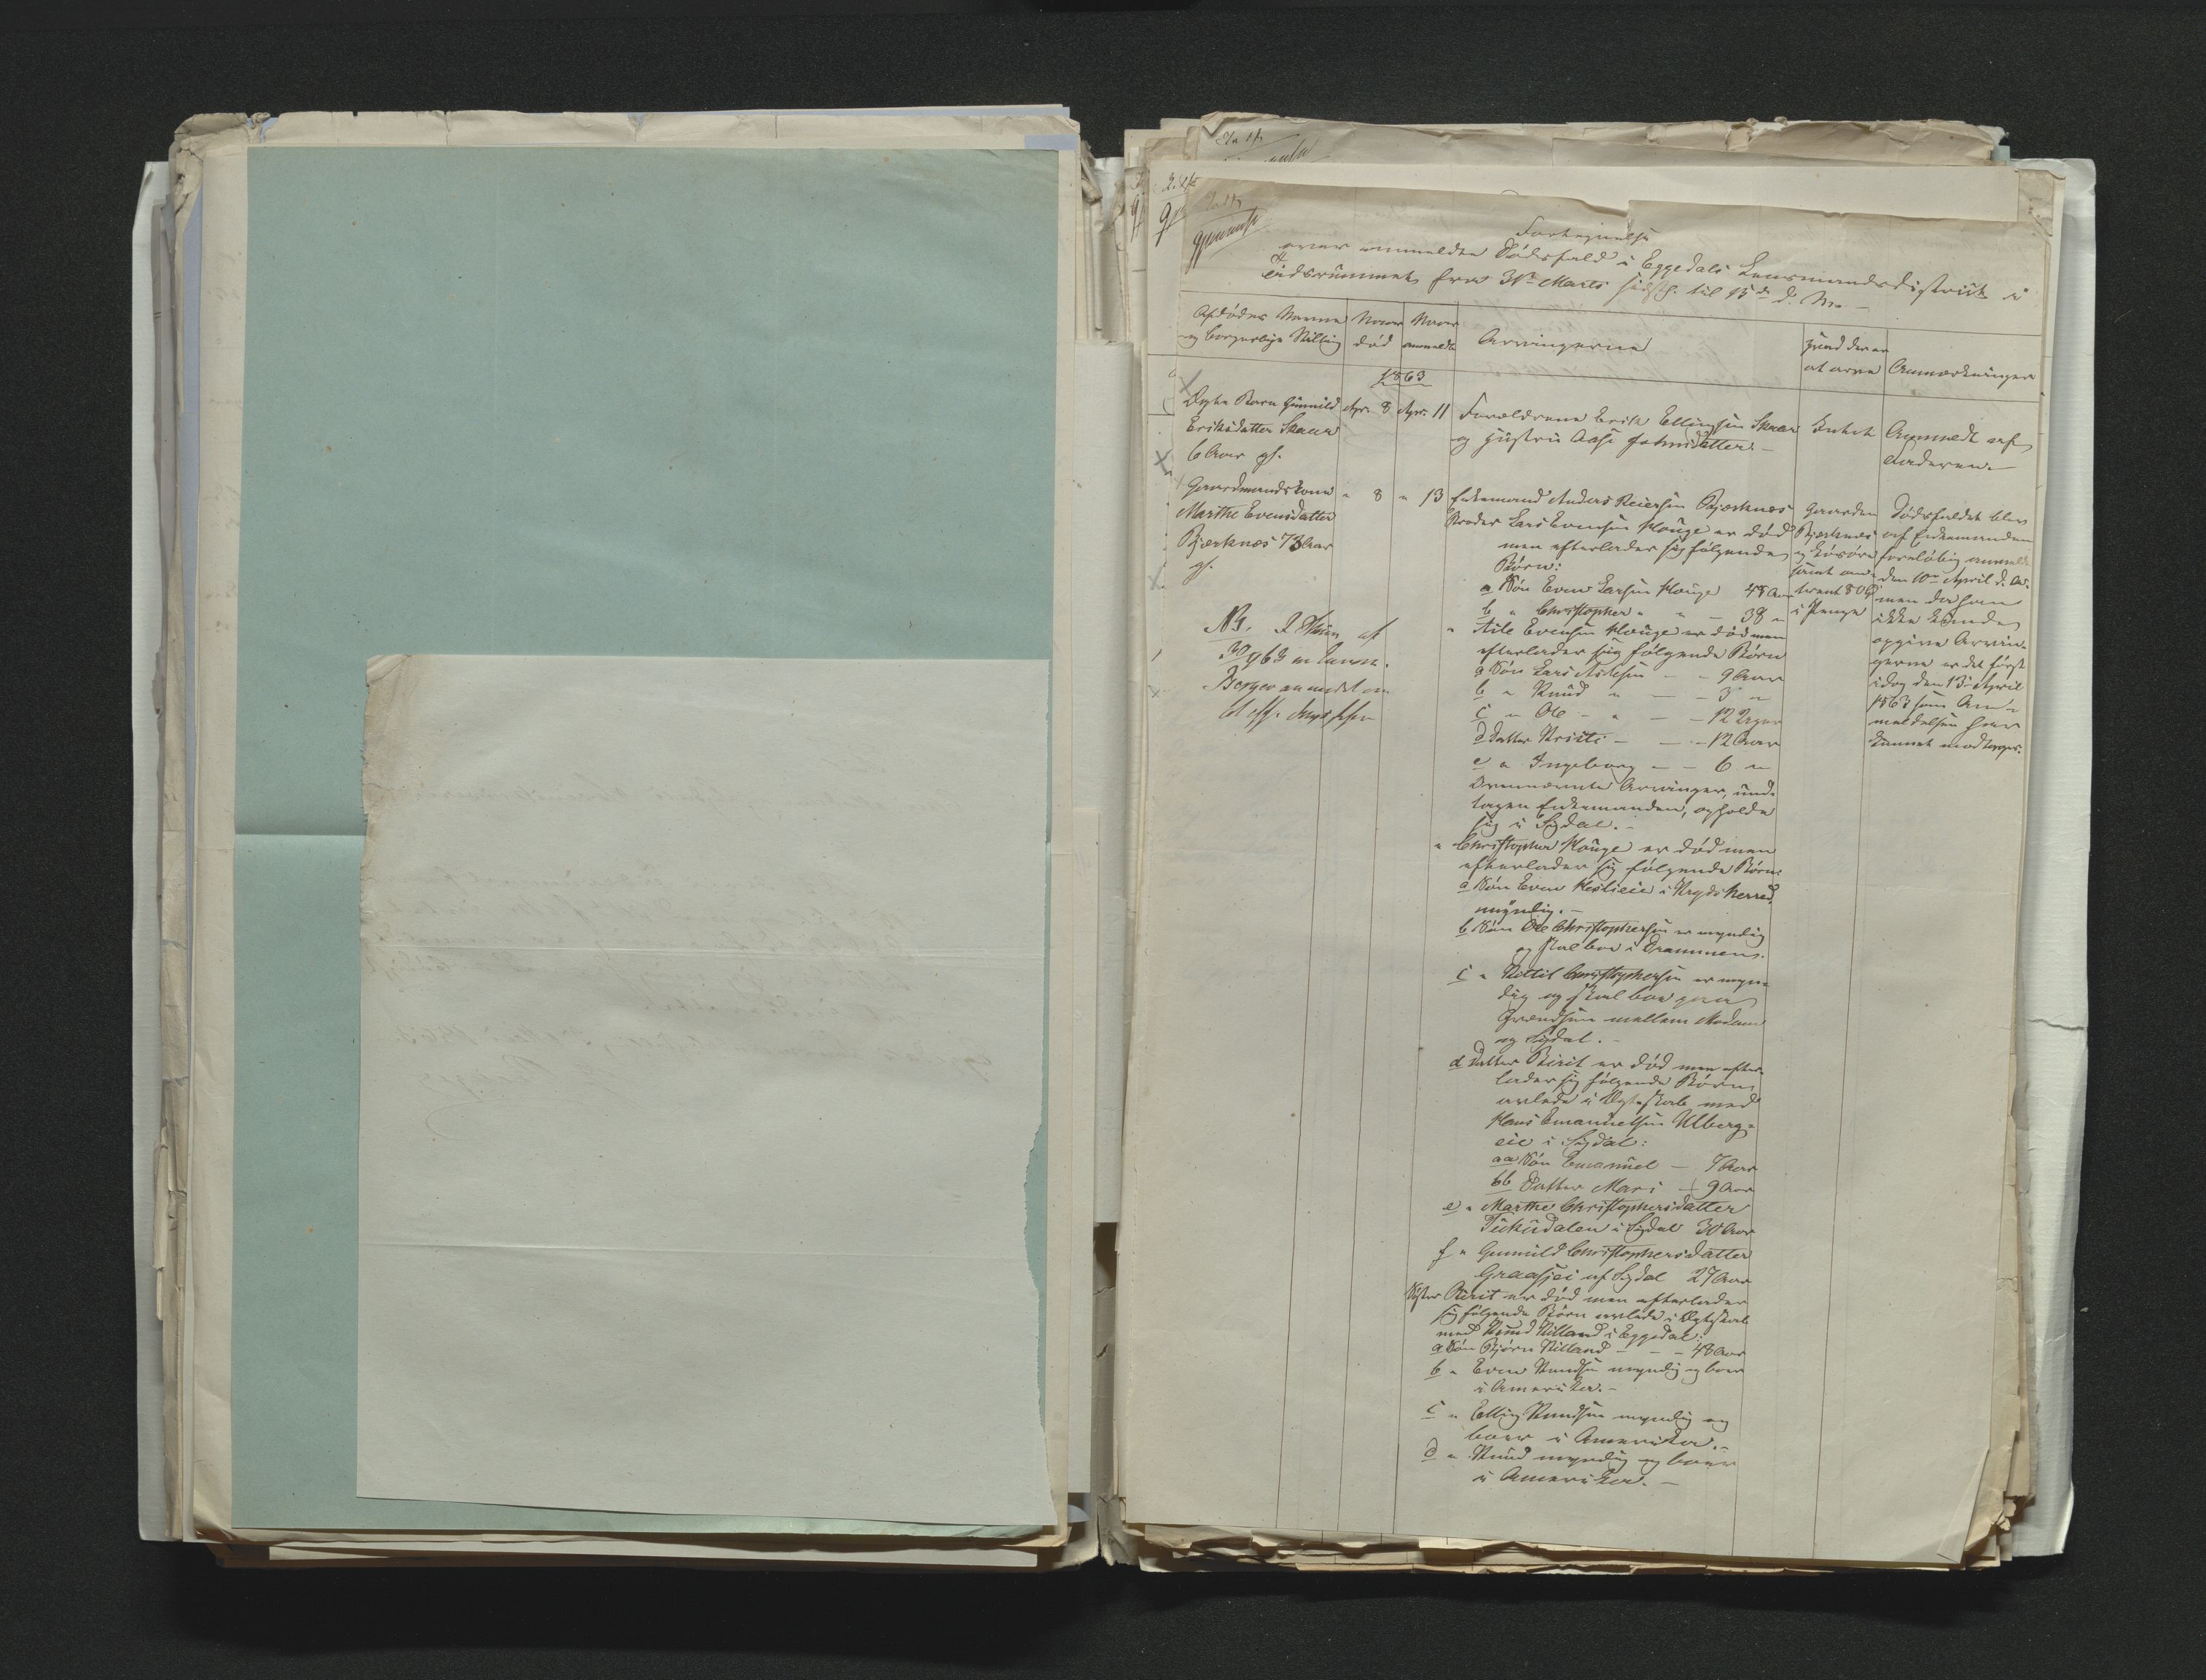 Fortegnelse
over anmeldte Dødsfald i Eggedals Lensmandsdistrikt i
Tidsrummet fra 31te Marts sidstl. til 15de d. M.
Afdødes Navne
og borgerlige Stilling
Naar
død
Naar
anmeldt
Arvingerne
hvad der er
at arve
Anmærkninger
1863
Ægte Barn Gunnild
Eriksdatter Skaar
6 Aar gl.
Apr. 8
Apr. 11
Forældrene Erik Ellingsen Skaar
og Hustru Aase Johnsdatter.
Intet
Anmeldt af
Faderen.
Gaardmandskone
Marthe Evensdatter
Bjørknes 73 Aar
gl.
" 8
" 13
Enkemand Anders Reiersen Bjørknes
Broder Lars Evensen Houge er død
men efterlader sig følgende
Børn:
a Søn Even Larsen Houge 48 Aar
b " Christopher " " 38 "
" Asle Evensen Houge er død men
efterlader sig følgende Børn
a Søn Lars Aslesen - - 9 Aar
b " Knud " - - 3 "
c " Ole - " - - 12 Uger
d Datter Kristi - - - 12 Aar
e " Ingeborg - - 6 "
Ovennævnte Arvinger, und-
tagen Enkemanden, opholde
sig i Sigdal.
" Christopher Houge er død men
efterlader sig følgende Børn:
a Søn Even i Krydsherred,
myndig.
b Søn Ole Christophersen er myndig
og skal boe i Drammen.
c " Kittil Christophersen er myn-
dig og skal boe paa
Grændsen mellem Modum
og Sigdal.
d Datter Birit er død men efter-
lader sig følgende Børn
avlede i Ægteskab med
Hans Emanuelsen Ulberg-
eie i Sigdal:
aa Søn Emanuel - 7 Aar
bb Datter Mari - 9 Aar
e " Marthe Christophersdatter
i Sigdal 30 Aar
f " Gunnild Christophersdatter
af Sigdal 27 Aar
Søster Birit er død men efterlader
sig følgende Børn avlede i Ægteskab
med Knud Nilland i Eggedal:
a Søn Bjørn Nilland - - - 48 Aar
b " Even Knudsen myndig og boer
i Amerika.
c " Elling Knudsen myndig og
boer i Amerika.
d " Knud myndig og boer
i Amerika.
Gaarden
Bjørknes
og Løsøre
samt om-
trent 80
i Penge
Dødsfaldet blev
af Enkemanden
foreløbig anmeldt
den 10de April d. A.
men da han
ikke kunde
opgive Arvin-
gerne er det først
idag den 13de April
1863 som An-
meldelsen har
kunnet modtages.